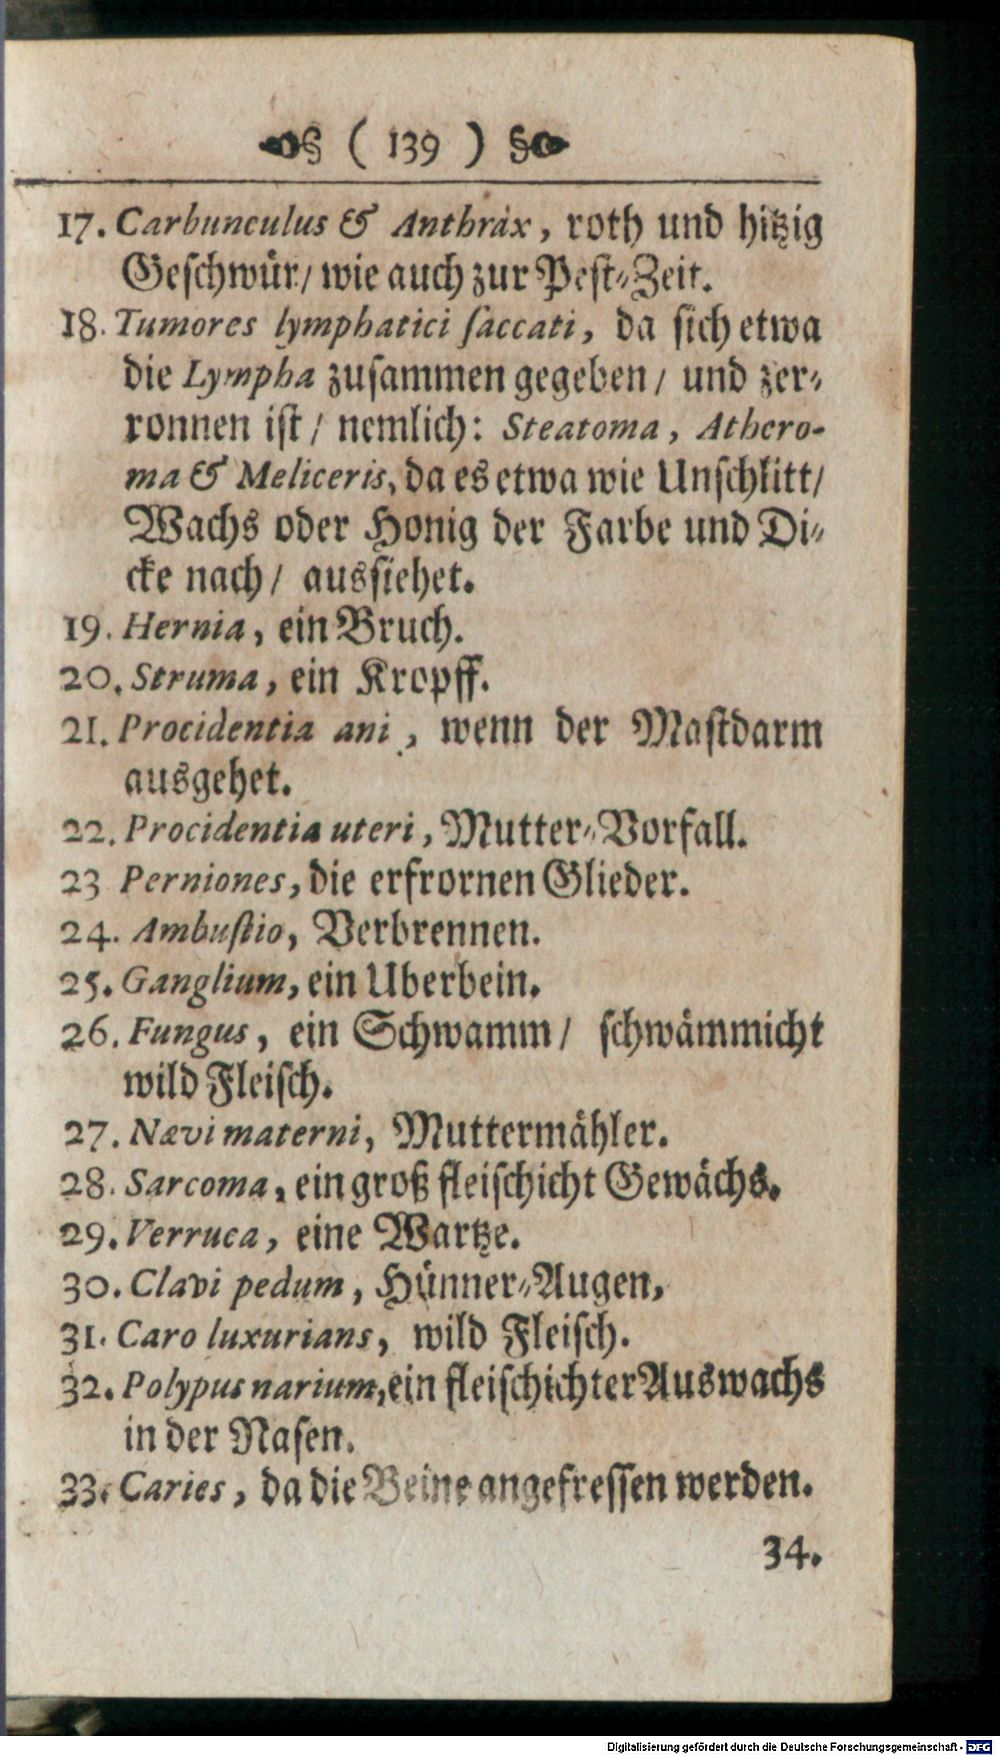 ( 139 )
17. Carbunculus & Anthrax, roth und hitzig
Geschwür/ wie auch zur Pest-Zeit.
18. Tumores lymphatici saccati, da sich etwa
die Lympha zusammen gegeben/ und zer-
ronnen ist/ nemlich: Steatoma, Athero-
ma & Meliceris, da es etwa wie Unschlitt/
Wachs oder Honig der Farbe und Di-
cke nach/ aussiehet.
19. Hernia, ein Bruch.
20. Struma, ein Kropff.
21. Procidentia ani, wenn der Mastdarm
ausgehet.
22. Procidentia uteri, Mutter-Vorfall.
23 Perniones, die erfrornen Glieder.
24. Ambustio, Verbrennen.
25. Ganglium, ein Uberbein.
26. Fungus, ein Schwamm/ schwämmicht
wild Fleisch.
27. Nævi materni, Muttermähler.
28. Sarcoma, ein groß fleischicht Gewächs.
29. Verruca, eine Wartze.
30. Clavi pedum, Hünner-Augen,
31. Caro luxurians, wild Fleisch.
32. Polypus narium, ein fleischichter Auswachs
in der Nasen.
33. Caries, da die Beine angefressen werden.
34.
Digitalisierung gefördert durch die Deutsche Forschungsgemeinschaft - DFG